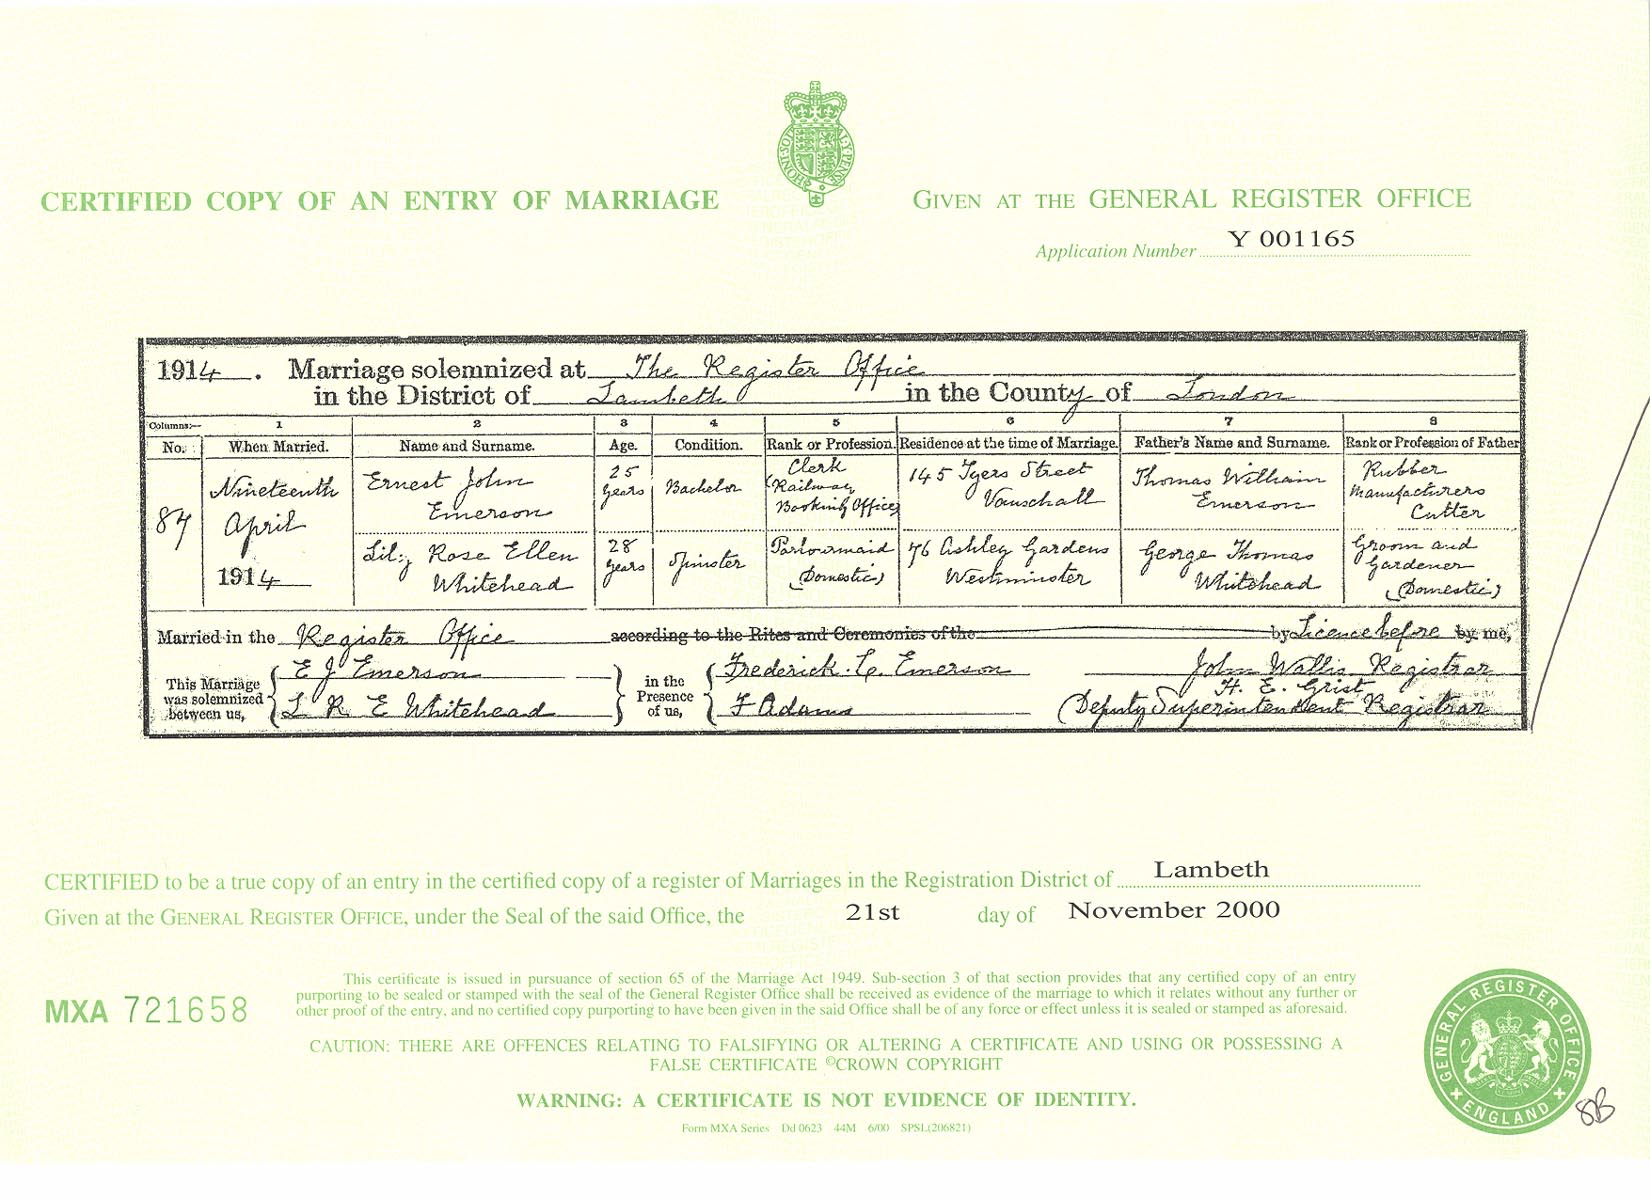 HONI·SOIT QUI MAL·Y·PENSE
CERTIFIED COPY OF AN ENTRY OF MARRIAGE
GIVEN AT THE GENERAL REGISTER OFFICE
Application Number Y 001165
1914. Marriage solemnized at The Register Office
in the District of Lambeth in the County of London
Columns:— 1 2 3 4 5 6 7 8
No. When Married. Name and Surname. Age. Condition. Rank or Profession. Residence at the time of Marriage. Father's Name and Surname. Rank or Profession of Father
87 Nineteenth April 1914
Ernest John Emerson 25 years Bachelor Clerk (Railway Booking Office) 145 Tyers Street Vauxhall Thomas William Emerson Rubber Manufacturers Cutter
Lily Rose Ellen Whitehead 28 years Spinster Parlourmaid (Domestic) 76 Ashley Gardens Westminster George Thomas Whitehead Groom and Gardener (Domestic)
Married in the Register Office according to the Rites and Ceremonies of the by Licence before by me,
This Marriage was solemnized between us, { E J Emerson
L R E Whitehead }
in the Presence of us, { Frederick. C. Emerson
F Adams
John Wallis Registrar
H. E. Grist
Deputy Superintendent Registrar
CERTIFIED to be a true copy of an entry in the certified copy of a register of Marriages in the Registration District of Lambeth
Given at the GENERAL REGISTER OFFICE, under the Seal of the said Office, the 21st day of November 2000
MXA 721658
This certificate is issued in pursuance of section 65 of the Marriage Act 1949. Sub-section 3 of that section provides that any certified copy of an entry
purporting to be sealed or stamped with the seal of the General Register Office shall be received as evidence of the marriage to which it relates without any further or
other proof of the entry, and no certified copy purporting to have been given in the said Office shall be of any force or effect unless it is sealed or stamped as aforesaid.
CAUTION: THERE ARE OFFENCES RELATING TO FALSIFYING OR ALTERING A CERTIFICATE AND USING OR POSSESSING A
FALSE CERTIFICATE ©CROWN COPYRIGHT
WARNING: A CERTIFICATE IS NOT EVIDENCE OF IDENTITY.
Form MXA Series Dd 0623 44M 6/00 SPSL(206821)
GENERAL REGISTER OFFICE
ENGLAND